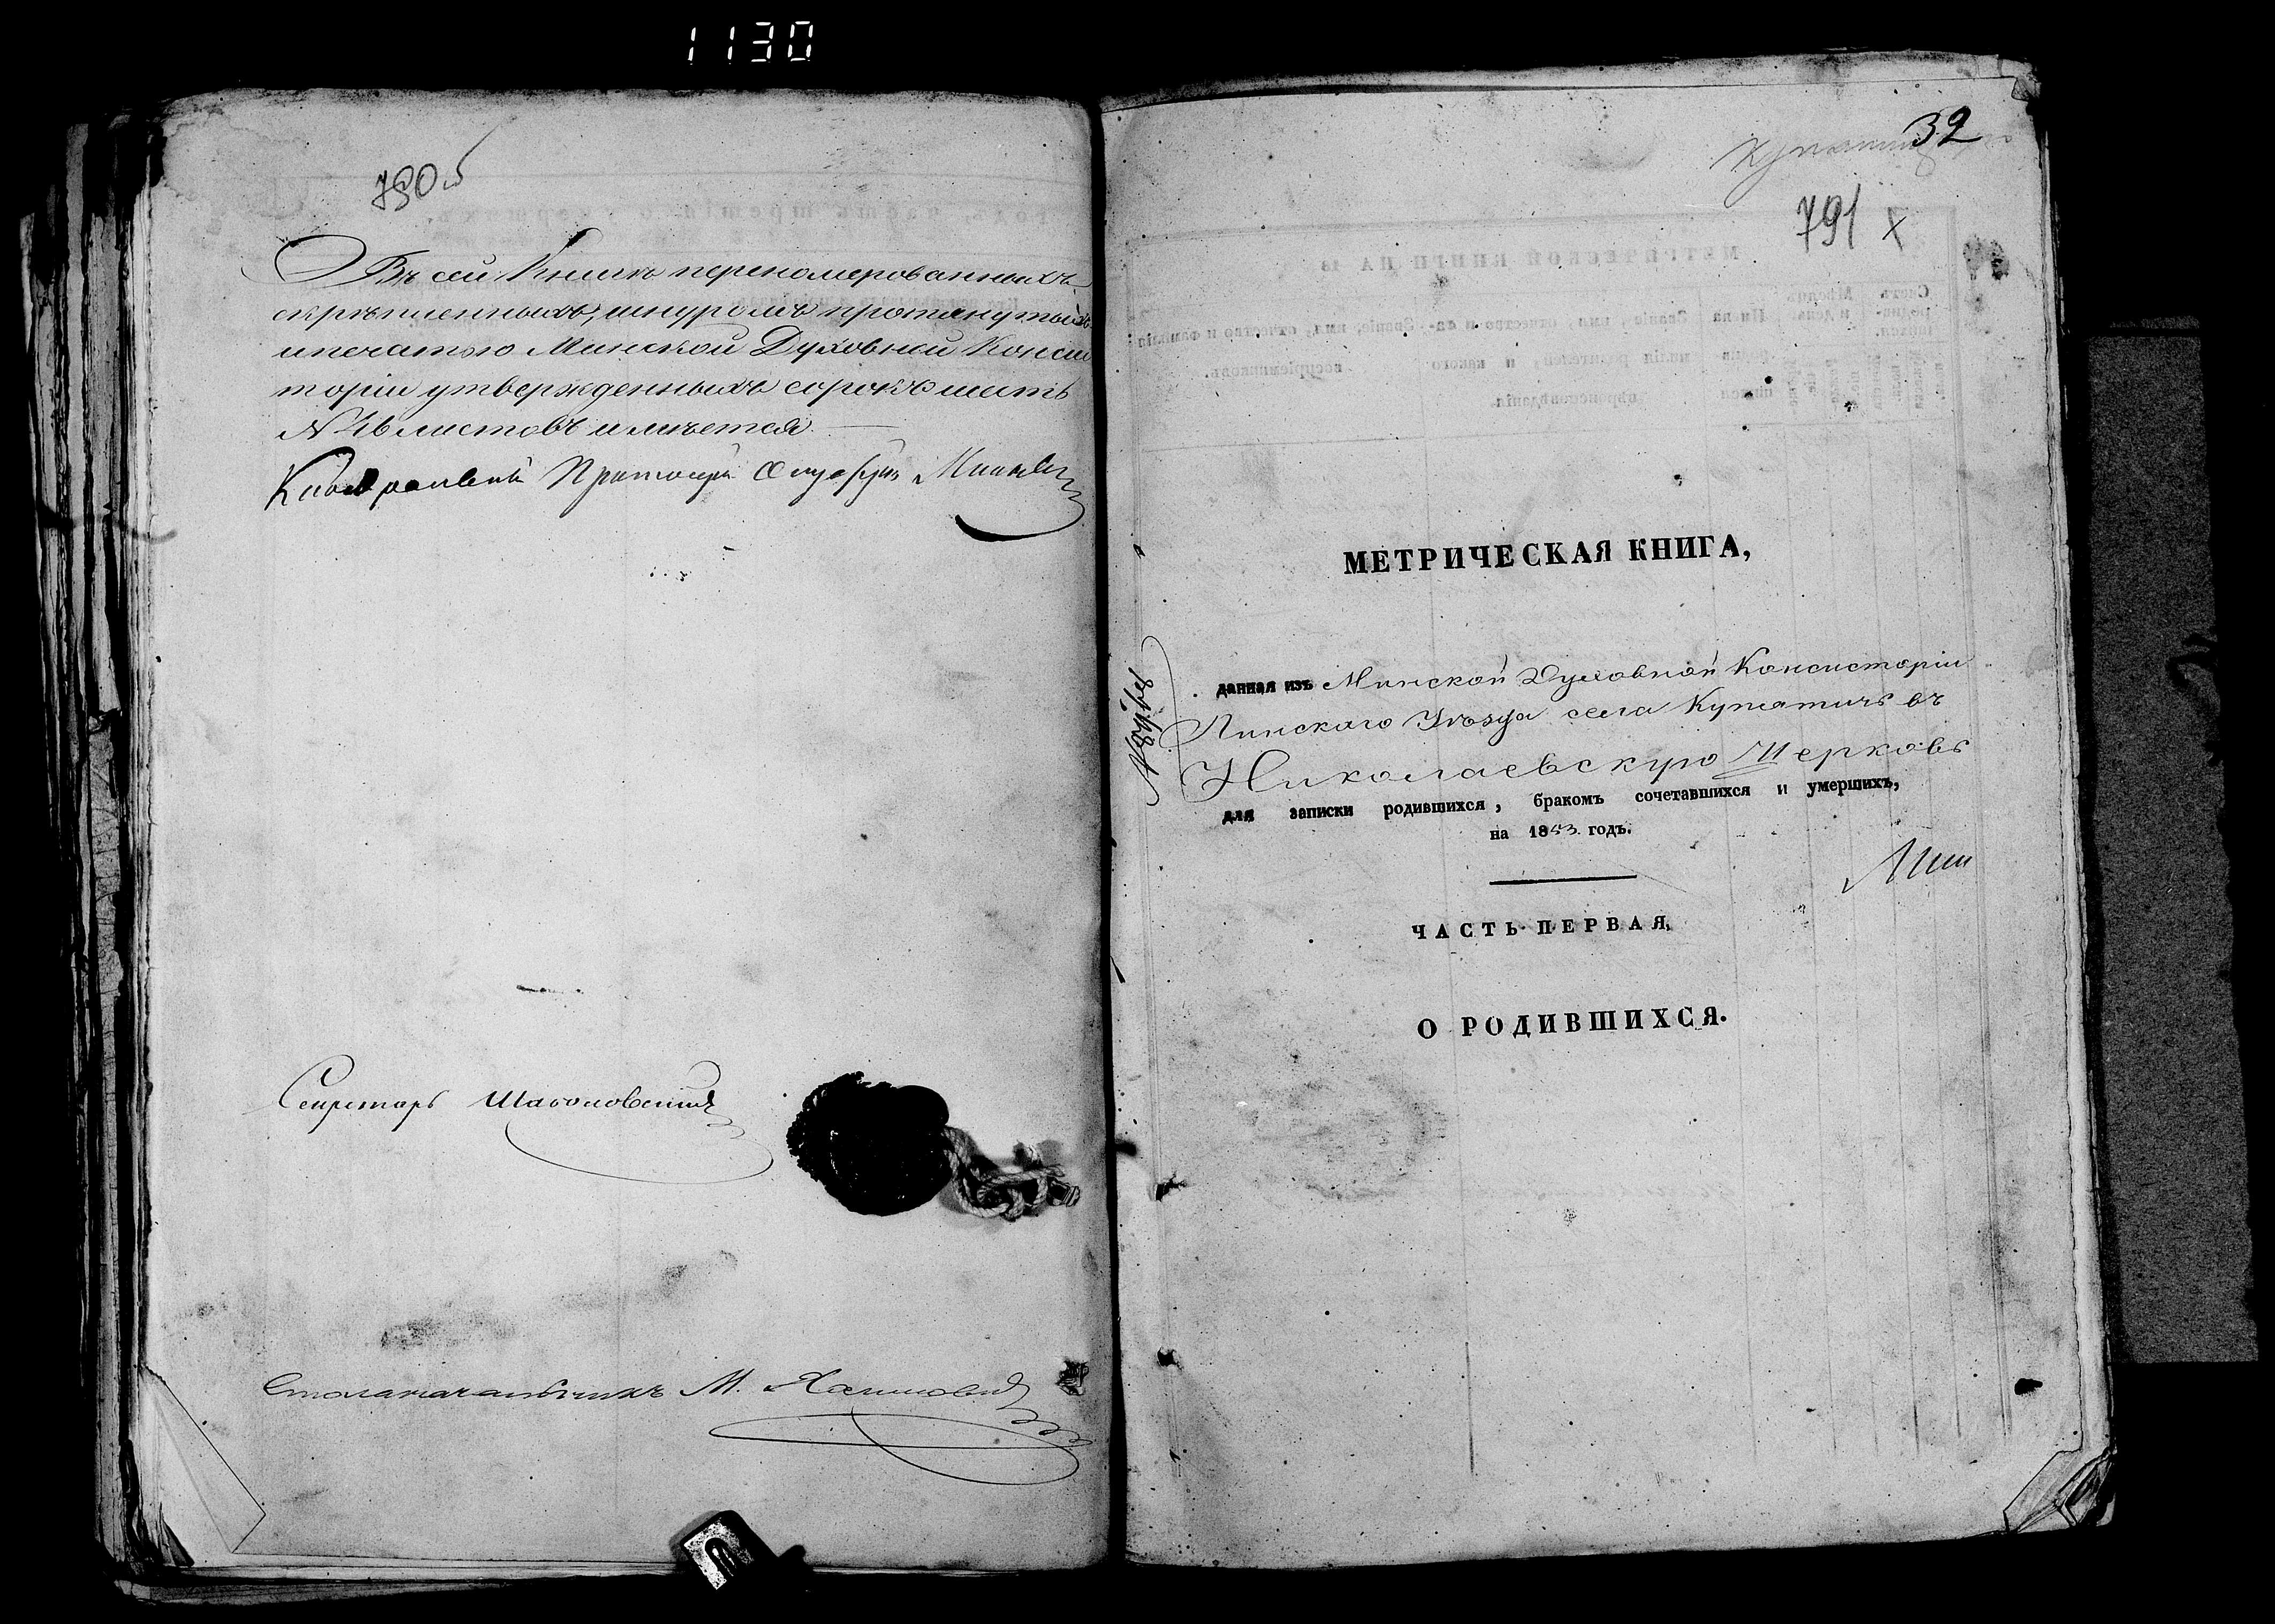 1130
790б
Въ сей Книгѣ перономерованныхъ
скрѣпленныхъ, шнуромъ протянутыхъ
и печатью Минской Духовной Консис
торіи утвержденныхъ сорокъ шесть
№ 46 листовъ имѣется.
Протоіерей
Секретарь
Столоначальникъ М.
32
791 х
МЕТРИЧЕСКАЯ КНИГА,
данная изъ Минской Духовной Консисторіи
Пинскаго Уѣзда села Купятичь въ
Николаевскую Церковь
для записки родившихся, бракомъ сочетавшихся и умершихъ,
на 1853. годъ.
ЧАСТЬ ПЕРВАЯ,
О РОДИВШИХСЯ.